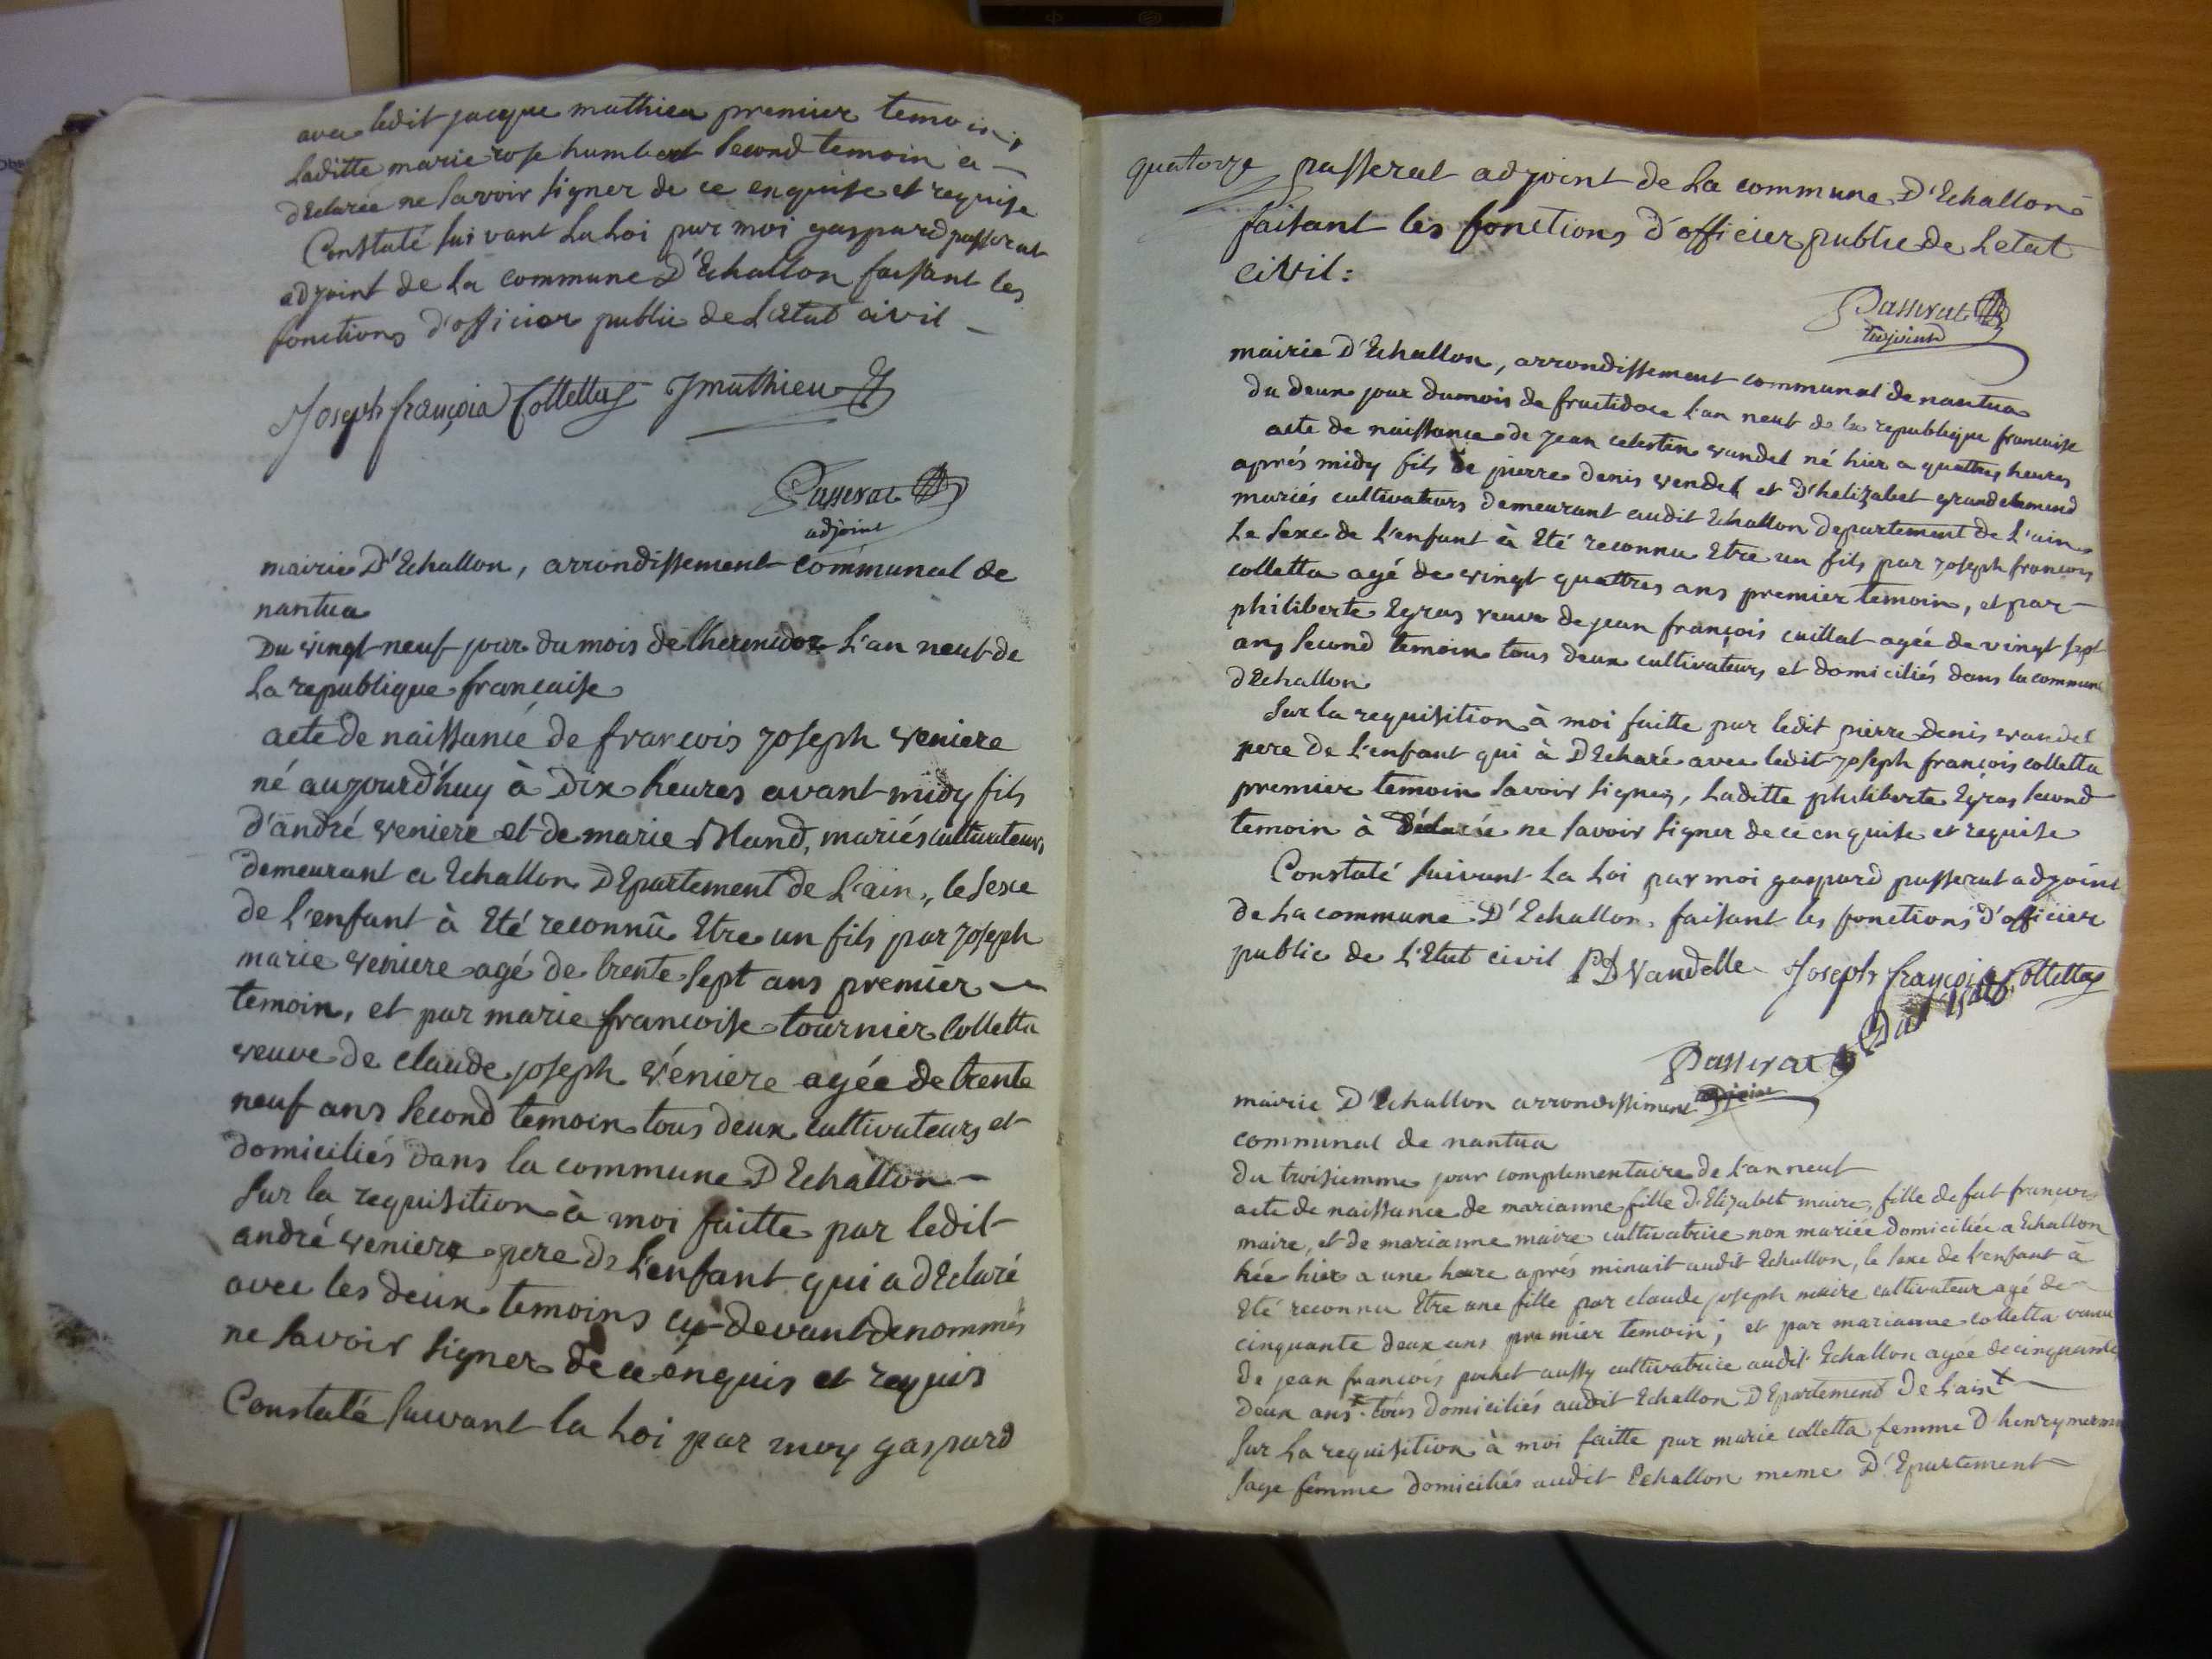 avec ledit jacque mathieu premier temoin,
laditte marie rose humbert second temoin a
déclarée ne savoir signer de ce enquise et requise
Constaté suivant La Loi par moi gaspard passerat
adjoint de la commune D'Echallon faisant les
fonctions d'officier public de L'Etat civil
Joseph françois Collettaz Jmathieu
Passerat
adjoint
mairie D'Echallon, arrondissement communal de
nantua
Du vingt neuf jour du mois de thermidor L'an neuf de
La republique francaise
acte de naissance de francois joseph veniere
né aujourd'huy à Dix heures avant midy fils
d'andré veniere et de marie Bland, mariés cultivateurs
demeurant a Echallon DEpartement de L'ain, le sexe
de L'enfant à Eté reconnû Etre un fils par joseph
marie veniere agé de trente sept ans premier
temoin, et par marie francoise tournier Colletta
veuve de claude joseph véniere agée de trente
neuf ans second temoin tous deux cultivateurs et
domiciliés dans la commune DEchallon
sur la requisition à moi faitte par ledit
andré veniere pere de L'enfant qui a dEclaré
avec les deux temoins cy-devant denommés
ne savoir signer de ce enquis et requis
Constaté suivant la Loi par moy gaspard
quatorze passerat adjoint de La commune D'Echallon
faisant les fonctions d'officier public de Letat
civil:
Passerat
adjoint
mairie D'Echallon, arrondissement communal de nantua
du deux jour du mois de fructidore l'an neuf de la republique francaise
acte de naissance de jean celestin vandel né hier a quattres heures
aprés midy fils de pierre denis vendel et d'helizabet grandclement
mariés cultivateurs demeurant audit Echallon departement de L'ain
Le sexe de L'enfant à Eté reconnu Etre un fils par joseph francois
colletta agé de vingt quattres ans premier temoin, et par
philiberte Egras veuve de jean françois cuillat agée de vingt sept
ans second temoin tous deux cultivateurs et domiciliés dans la commune
dEchallon
sur la requisition à moi faitte par ledit pierre Denis vandel
pere de L'enfant qui à DEclaré avec ledit joseph françois colletta
premier temoin savoir signer, Laditte philiberte Egras second
temoin à déclarée ne savoir signer de ce enquise et requise
Constaté suivant La Loi par moi gaspard passerat adjoint
de La commune D'Echallon, faisant les fonctions d'officier
public de L'Etat civil PD Vandelle Joseph françois Collettaz
Passerat
adjoint
mairie D'Echallon arrondissiment
communal de nantua
du troisiemme jour complimentaire de L'an neuf
acte de naissance de marianne fille d'Elizabet maire, fille de fut françois
maire, et de marianne maire cultivatrice non mariée domiciliée a Echallon
née hier a une heure aprés minuit audit Echallon, le sexe de L'enfant à
Eté reconnu Etre une fille par claude joseph maire cultivateur agé de
cinquante deux ans premier temoin; et par marianne colletta veuve
de jean francois pochet aussy cultivatrice audit Echallon agée de cinquante
deux ans tous domiciliés audit Echallon DEpartement de L'ain
Sur La requisition à moi faitte par marie colletta femme d'henry
sage femme domiciliés audit Echallon meme D'Epartement